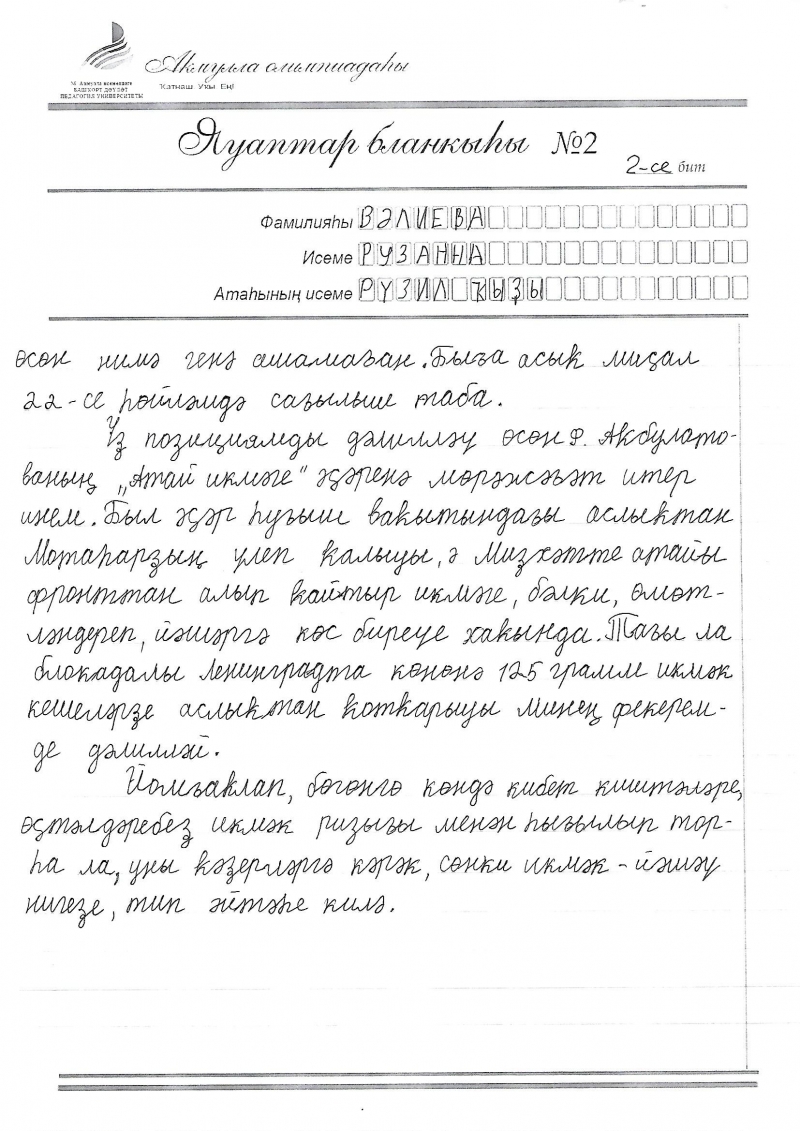 Аҡмулла олимпиадаһы
М. Аҡмулла исемендәге
БАШҠОРТ ДӘҮЛӘТ
ПЕДАГОГИЯ УНИВЕРСИТЕТЫ
Ҡатнаш Уҡы Ең!
Яуаптар бланкыһы №2
2-се бит
Фамилияһы ВӘЛИЕВА
Исеме РУЗАННА
Атаһының исеме РҮЗИЛ ҠЫҘЫ
өсөн нимә генә ашамаған. Быға асыҡ миҫал
22-се һөйләмдә сағылыш таба.
Үҙ позициямды дәлилләү өсөн Ф. Аҡбулато-
ваның „Атай икмәге" әҫәренә мөрәжәғәт итер
инем. Был әҫәр һуғыш ваҡытындағы аслыҡтан
Мотаһарҙың үлеп ҡалыуы, ә Миҙхәтте атайы
фронттан алып ҡайтҡан икмәге, бәлки, өмөт-
ләндереп, йәшәргә көс биреүе хаҡында. Тағы ла
блокадалы Ленинградта көнөнә 125 грамм икмәк
кешеләрҙе аслыҡтан ҡотҡарыуы минең фекерем-
де дәлилләй.
Йомғаҡлап, бөгөнгө көндә кибет киштәләре,
өҫтәлдәребеҙ икмәк ризығы менән һығылып тор-
һа ла, уны ҡәҙерләргә кәрәк, сөнки икмәк - йәшәү
нигеҙе, тип әйтәһе килә.